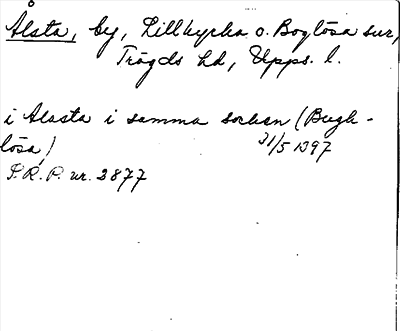 Ålsta, by, Lillkyrka o. Boglösa snr,
Trögds hd, Upps. l.
i Alasta i samma sochan (Bugh-
lösa)
31/5 1397
S.R.P. nr. 2877